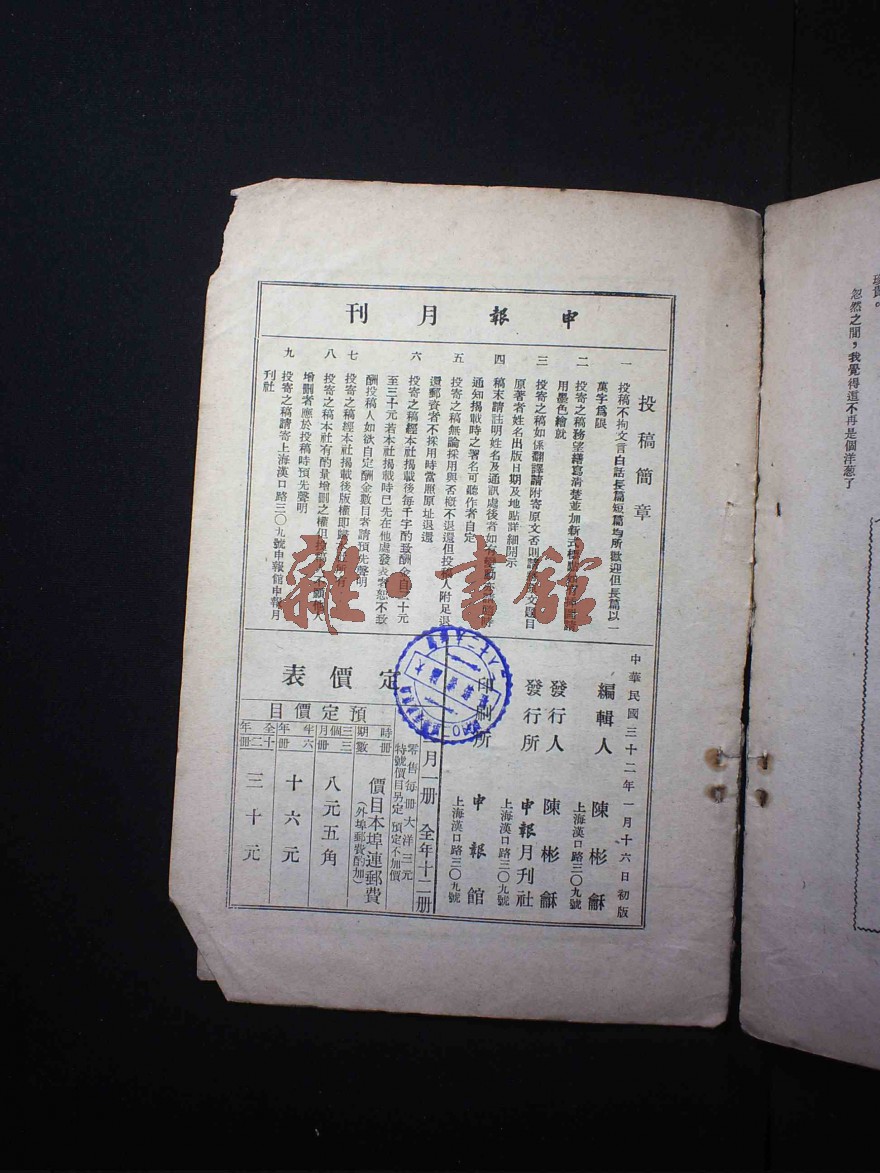 申報月刊
投稿簡章
一 投稿不拘文言白話長篇短篇均所歡迎但長篇以一
萬字爲限
二 投寄之稿務望繕寫清楚並加新式標點
用墨色繪就
三 投寄之稿如係翻譯請附寄原文否則請
原著者姓名出版日期及地點詳細開示
四 稿末請註明姓名及通訊處後者如有變動
通知揭載時之署名可聽作者自定
五 投寄之稿無論採用與否概不退還但投稿人附足退
還郵資者不採用時當照原址退還
六 投寄之稿經本社揭載後每千字酌致酬金自 十元
至三十元若本社揭載時已先在他處發表者恕不致
酬投稿人如欲自定酬金數目者請預先聲明
七 投寄之稿經本社揭載後版權即歸
八 投寄之稿本社有酌量增删之權但投稿人不願他人
增删者應於投稿時預先聲明
九 投寄之稿請寄上海漢口路三〇九號申報館申報月
刊社
中華民國三十二年一月十六日初版
編輯人 陳彬龢
上海漢口路三〇九號
發行人 陳彬龢
發行所 申報月刊社
上海漢口路三〇九號
印刷所 申報館
上海漢口路三〇九號
定價表
月一册 全年十二册
零售每册大洋三元
特號價目另定 預定不加價
預定價目
時期 册數 價目本埠連郵費
(外埠郵費酌加)
三個月 三册 八元五角
半年 六册 十六元
全年 十二册 三十元
忽然之間，我覺得這不再是個洋葱了
雜·書館